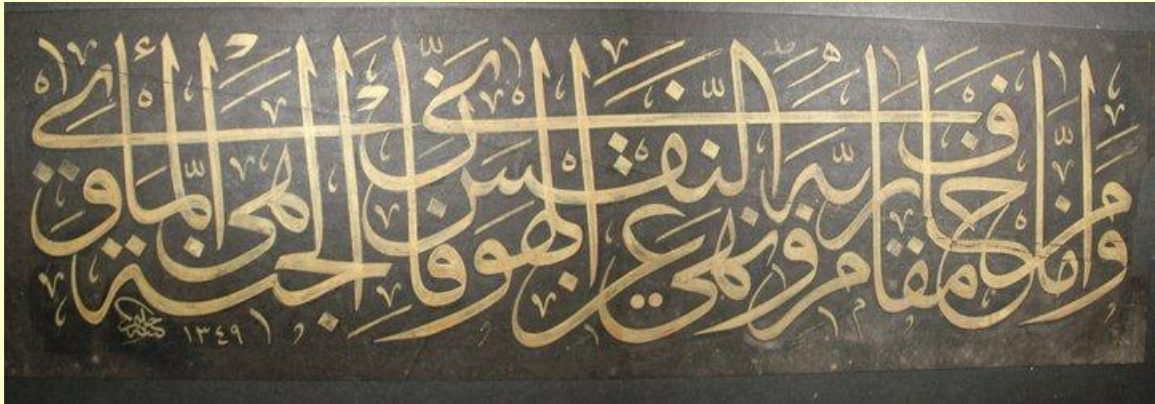 وَأَمَّا مَنْ خَافَ مَقَامَ رَبِّهِ وَنَهَى النَّفْسَ عَنِ الْهَوَى فَإِنَّ الْجَنَّةَ هِيَ الْمَأْوَى
١٣٤٩